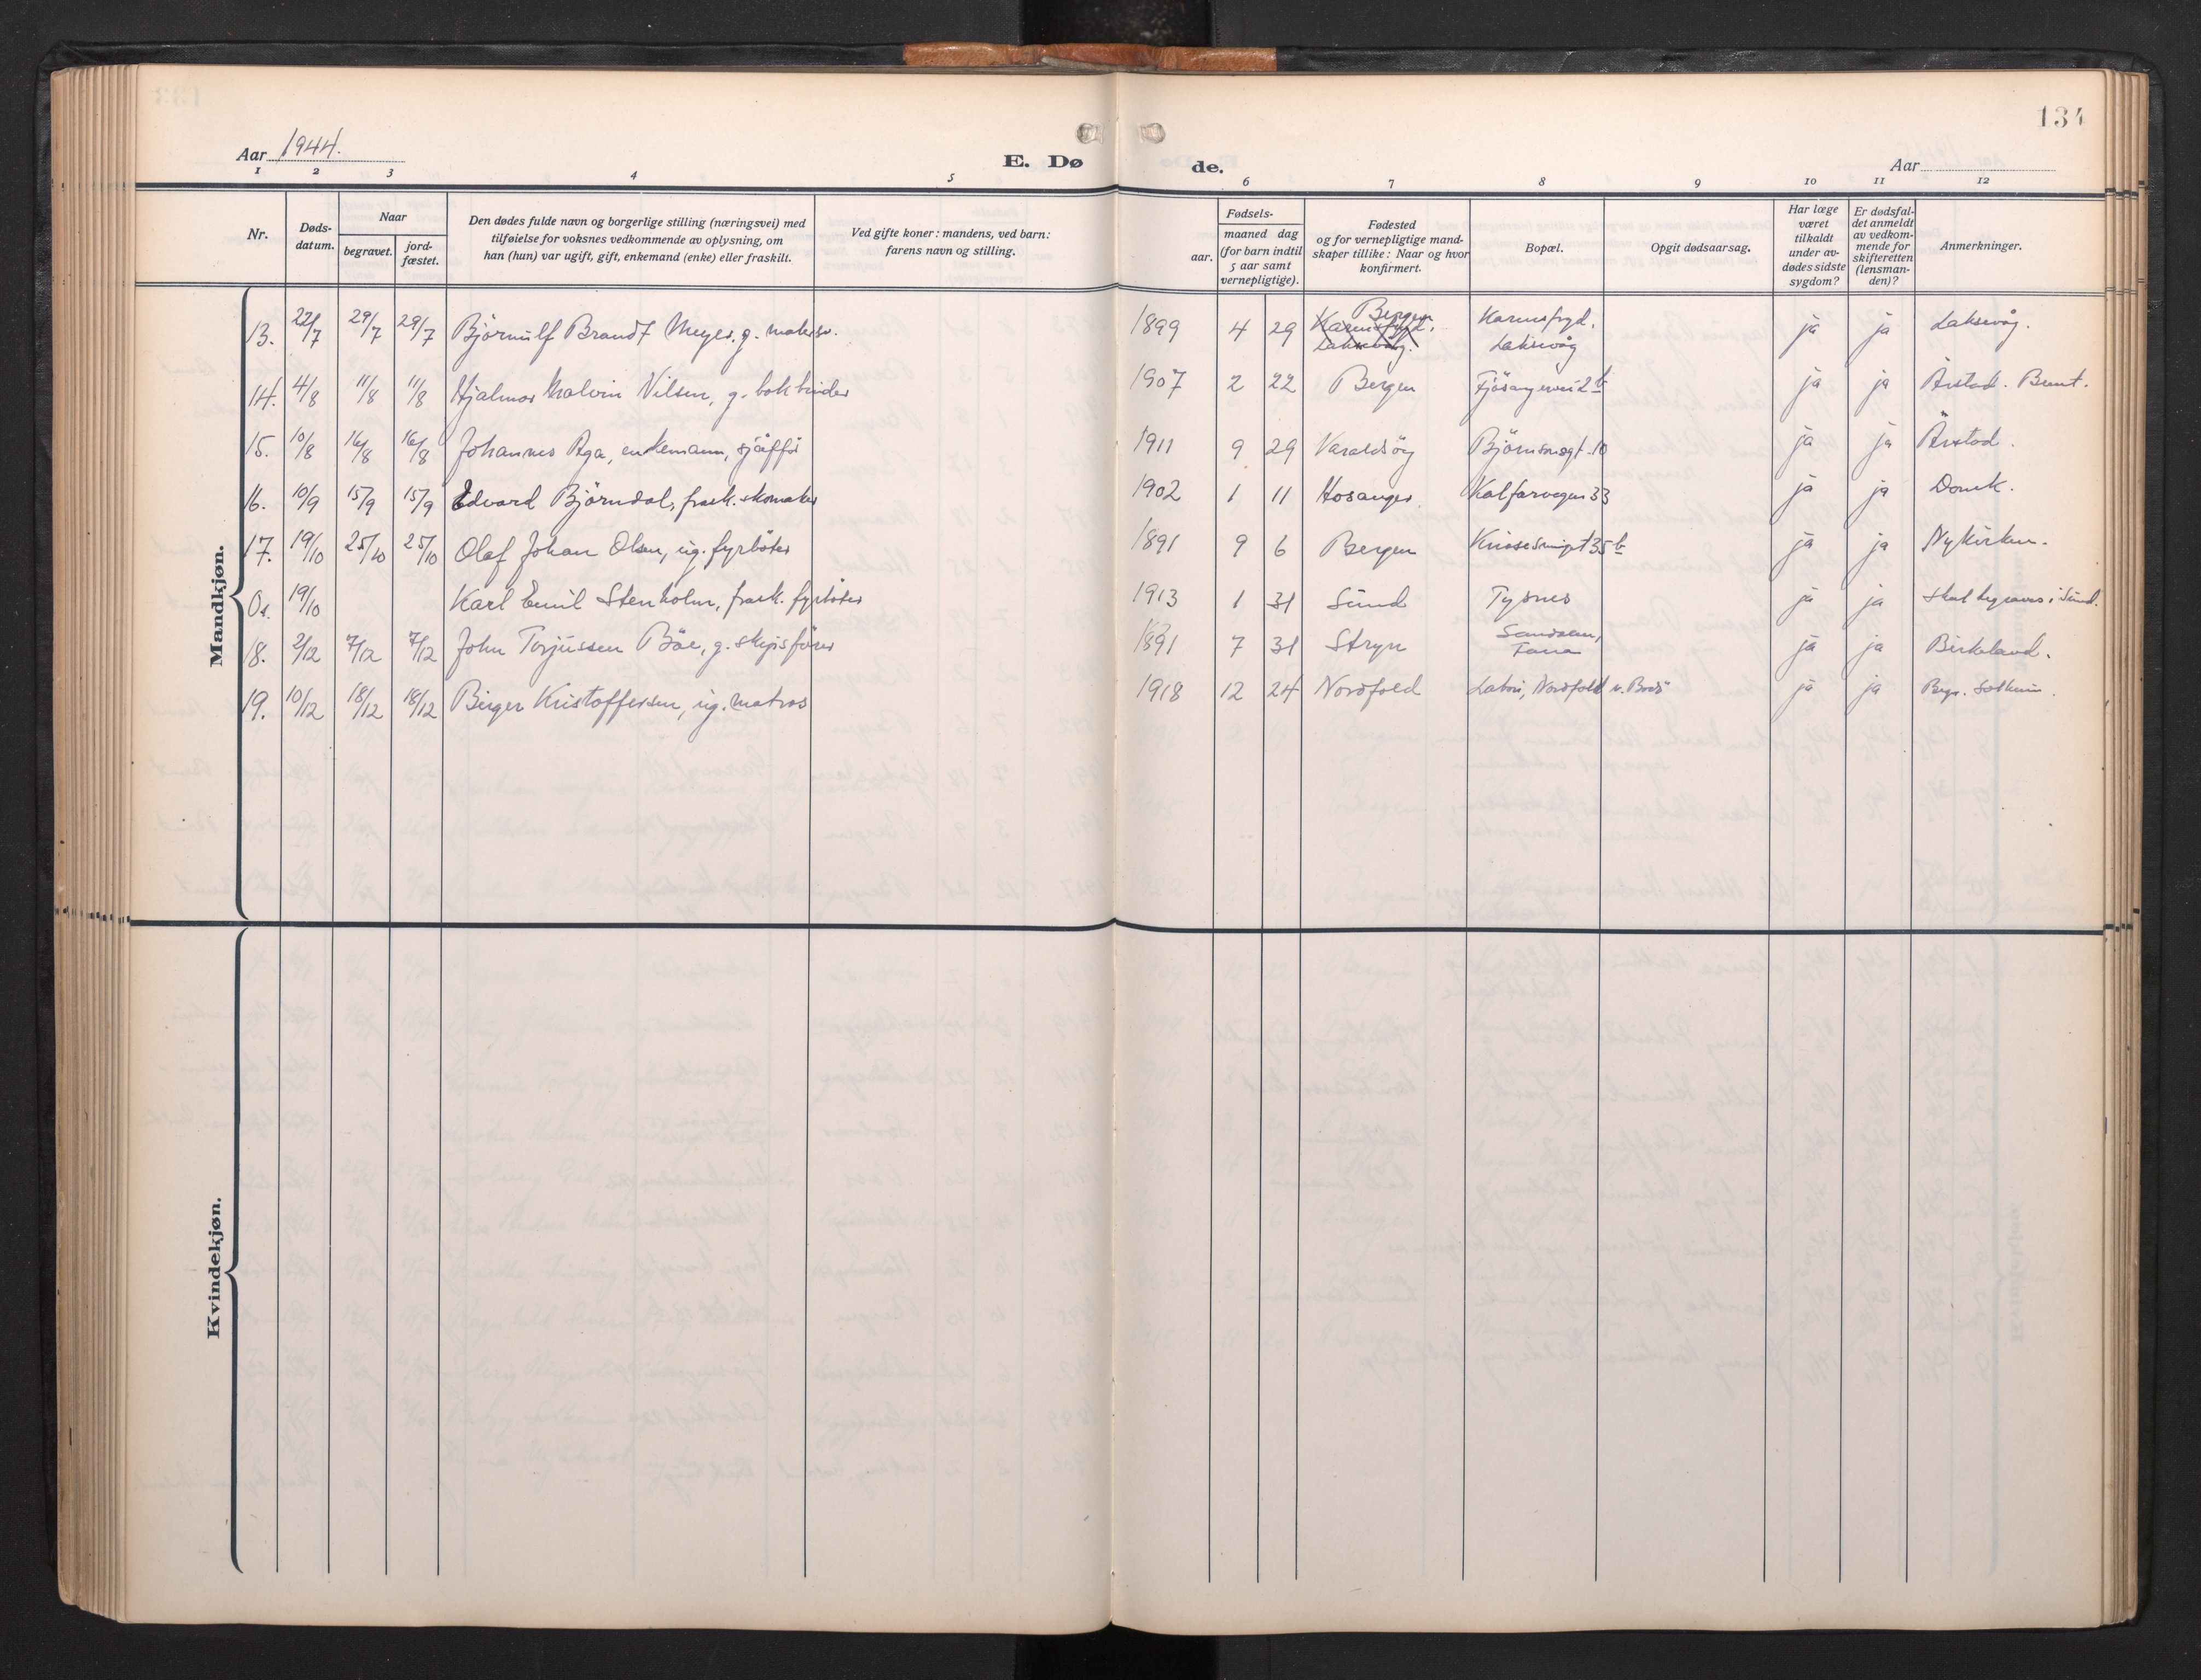 134
Aar 1944.
E. Dø
de.
Aar
1 2 3 4 5 6 7 8 9 10 11 12
Nr.
Døds-
datum.
Naar
begravet.
jord-
fæstet.
Den dødes fulde navn og borgerlige stilling (næringsvei) med
tilføielse for voksnes vedkommende av oplysning, om
han (hun) var ugift, gift, enkemand (enke) eller fraskilt.
Ved gifte koner: mandens, ved barn:
farens navn og stilling.
Fødsels-
aar.
maaned dag
(for barn indtil
5 aar samt
vernepligtige).
Fødested
og for vernepligtige mand-
skaper tillike: Naar og hvor
konfirmert.
Bopæl.
Opgit dødsaarsag.
Har læge
været
tilkaldt
under av-
dødes sidste
sygdom?
Er dødsfal-
det anmeldt
av vedkom-
mende for
skifteretten
(lensman-
den)?
Anmerkninger.
Mandkjøn.
13. 22/7 29/7 29/7 Björnulf Brandt Meyer, g. 1899 4 29 Bergen Laksevåg ja ja Laksevåg.
14. 4/8 11/8 11/8 Hjalmar Malvin Nilsen, g. bokbinder 1907 2 22 Bergen Fjösangervei 2b ja ja Årstad. Brent.
15. 10/8 16/8 16/8 Johannes Aga, enkemann, sjåffør 1911 9 29 Varaldsöy Björnsonsgt. 10 ja ja Årstad.
16. 10/9 15/9 15/9 Edvard Björndal, frask. skomaker 1902 1 11 Hosanger Kalfarvegen 33 ja ja Domk.
17. 19/10 25/10 25/10 Olaf Johan Olsen, ug. fyrböter 1891 9 6 Bergen 35b ja ja Nykirken.
Os. 19/10 Karl Emil Stenholm, frask. fyrböter 1913 1 31 Sund Tysnes ja ja Skal begraves i Sund.
18. 2/12 7/12 7/12 John Torjussen Böe, g. skipsförer 1891 7 31 Stryn ja ja Birkeland.
19. 10/12 18/12 18/12 Birger Kristoffersen, ug. matros 1918 12 24 Nordfold Nordfold v. Bodö ja ja Begr. Solheim.
Kvindekjøn.